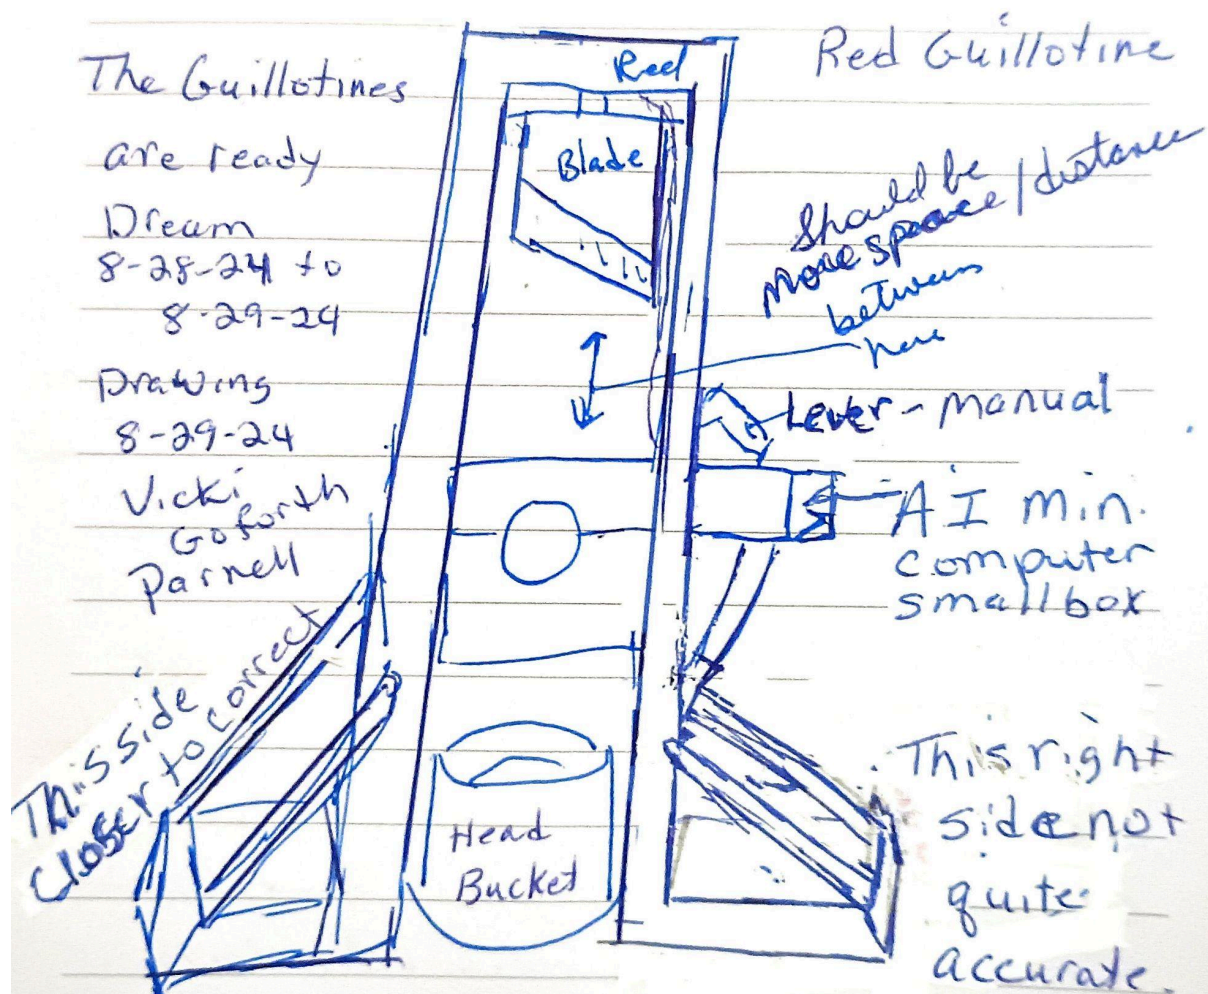 The Guillotines
are ready
Dream
8-28-24 to
8-29-24
Drawing
8-29-24
Vicki
Goforth
Parnell
This side
closer to correct
Red
Blade
Head
Bucket
Red Guillotine
Should be
more space/distance
between
here
Lever - manual
AI min.
computer
small box
This right
side not
quite
accurate.